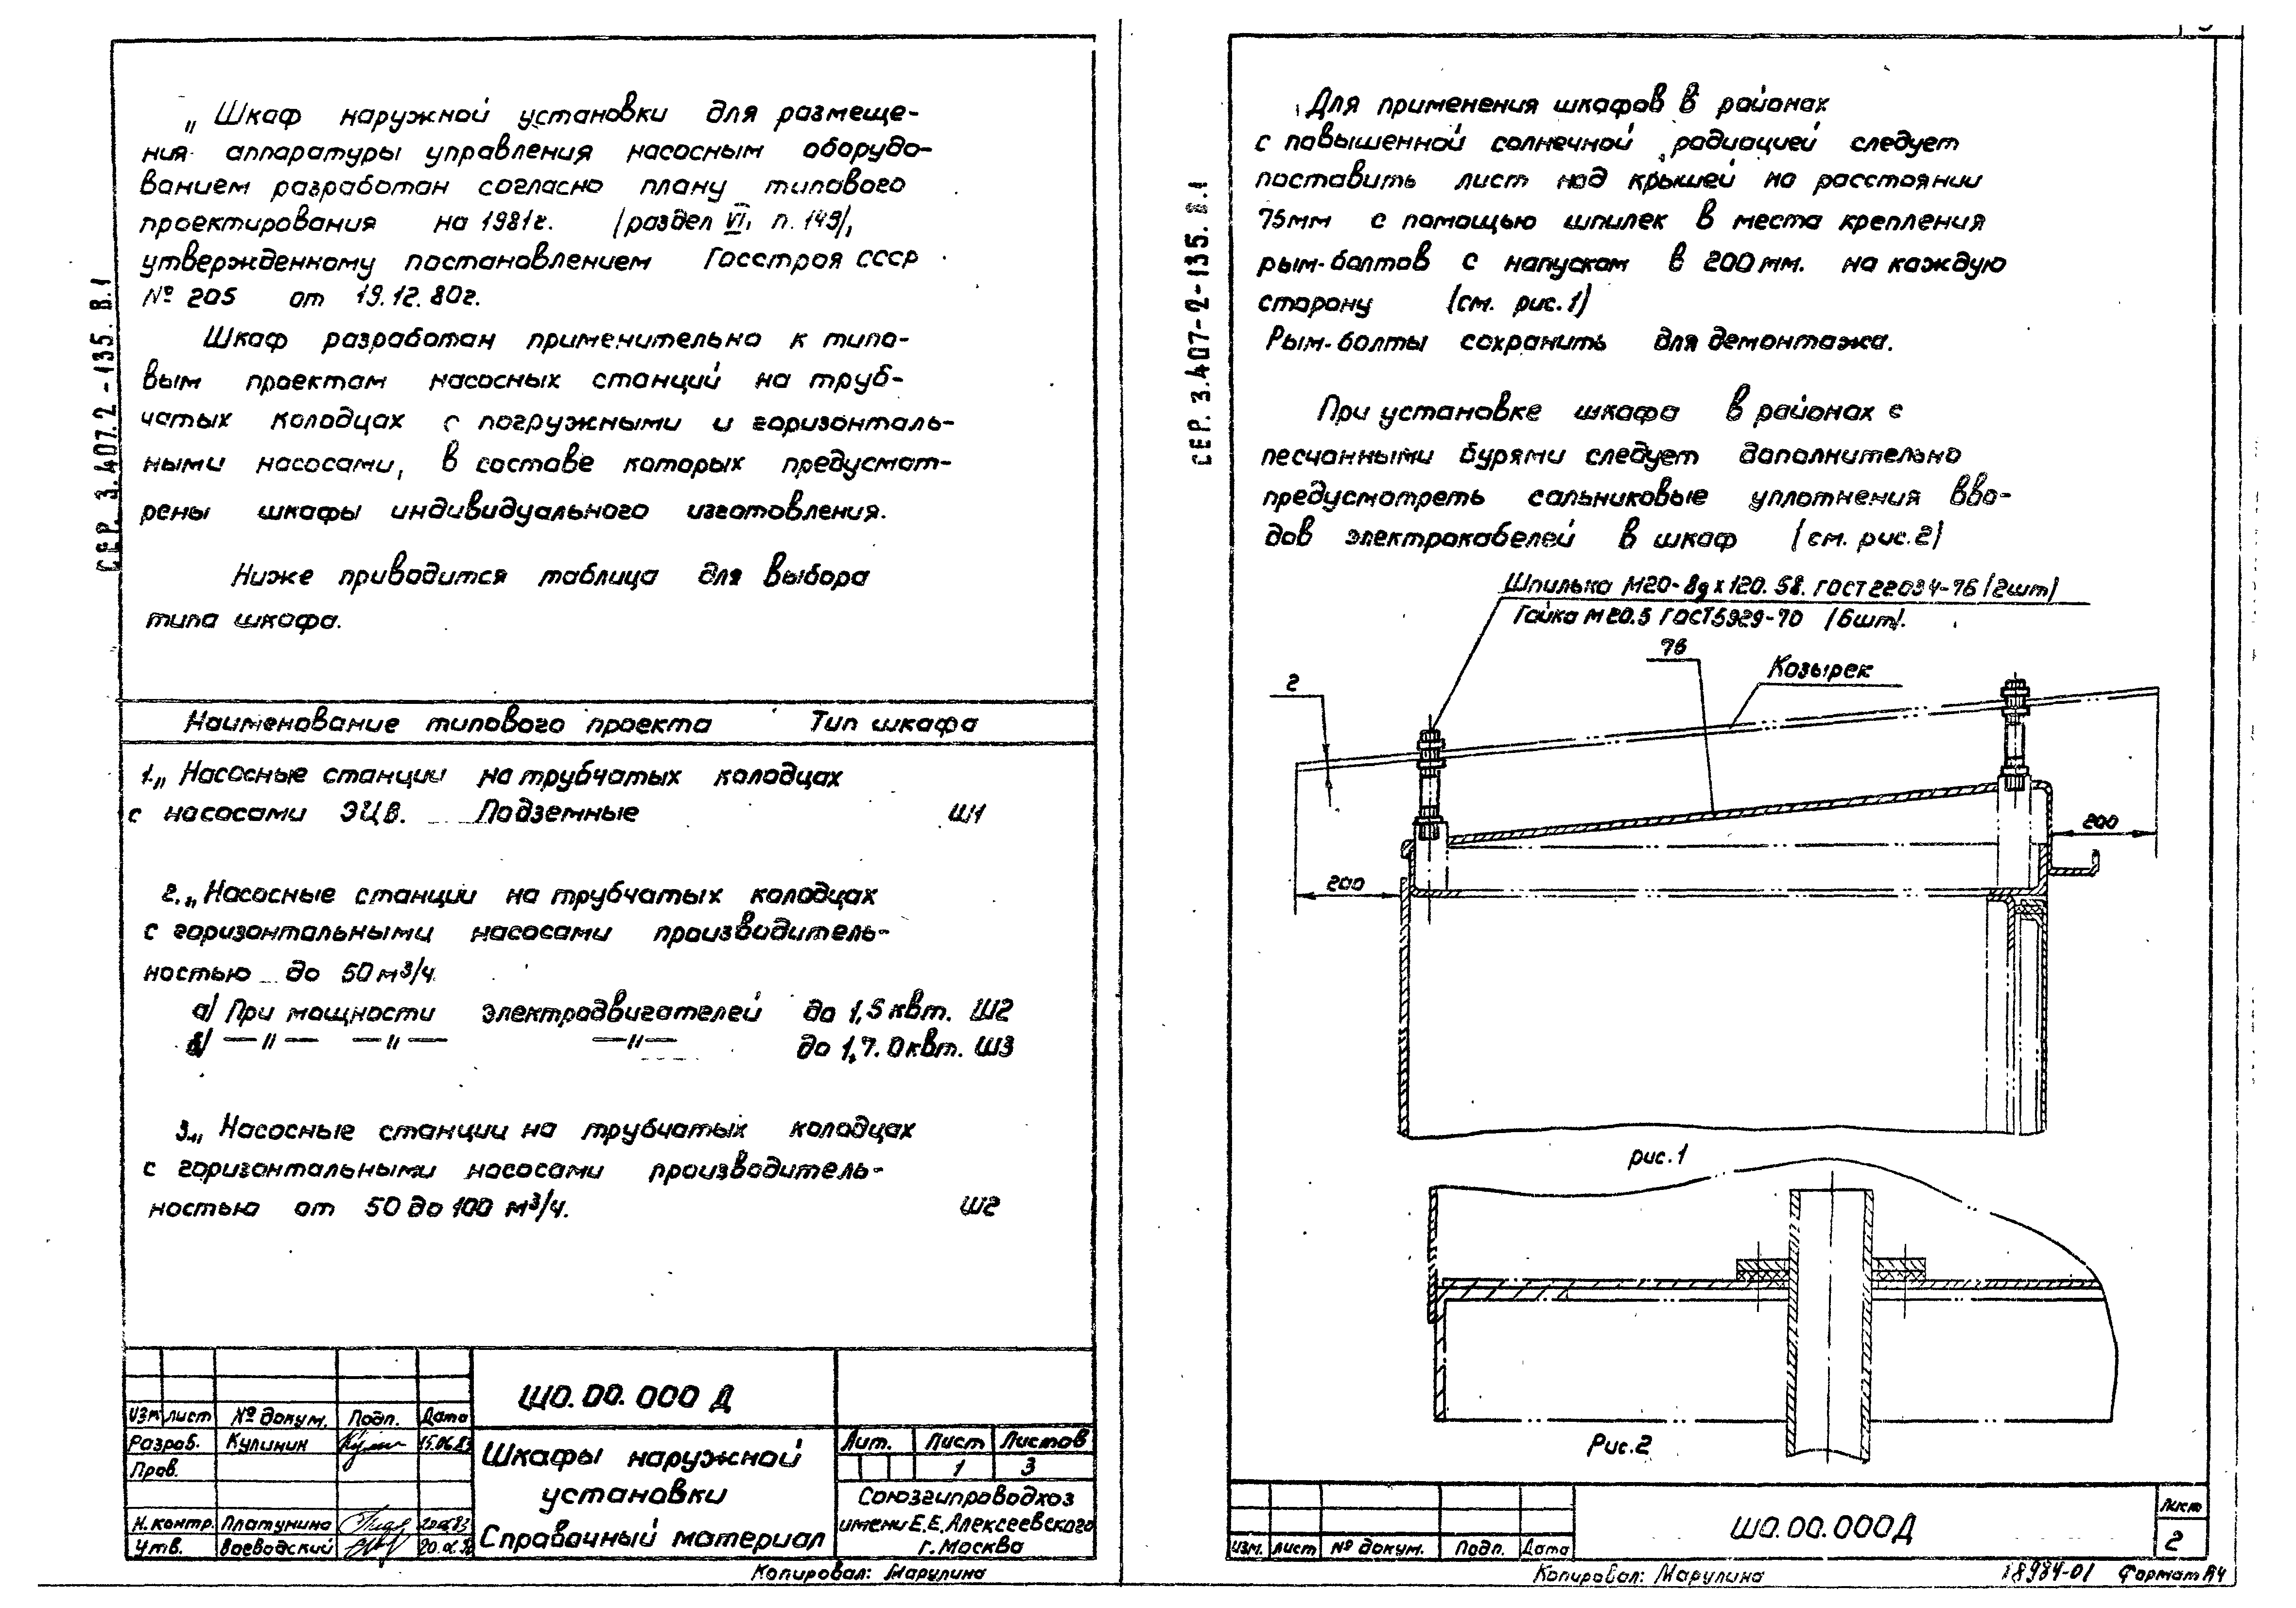 СЕР. 3.407.2-135. В.1
„ Шкаф наружной установки для размеще-
ния аппаратуры управления насосным оборудо-
ванием разработан согласно плану типового
проектирования на 1981г. /раздел VI, п. 149/,
утвержденному постановлением Госстроя СССР
№ 205 от 19.12.80г.
Шкаф разработан применительно к типо-
вым проектам насосных станций на труб-
чатых колодцах с погружными и горизонталь-
ными насосами, в составе которых предусмот-
рены шкафы индивидуального изготовления.
Ниже приводится таблица для выбора
типа шкафа.
Наименование типового проекта Тип шкафа
1.„ Насосные станции на трубчатых колодцах
с насосами ЭЦВ. Подземные Ш1
2.„ Насосные станции на трубчатых колодцах
с горизонтальными насосами производитель-
ностью до 50 м³/ч
а/ При мощности электродвигателей до 1,5 квт. Ш2
б/ —„— —„— —„— до 1,7.0 квт. Ш3
3.„ Насосные станции на трубчатых колодцах
с горизонтальными насосами производитель-
ностью от 50 до 100 м³/ч. Ш2
Ш0.00.000 Д
Изм лист № докум. Подп. Дата
Разраб. Кулинин 15.06.83
Пров.
Н.контр. Платунина
Утв. Воеводский
Шкафы наружной
установки
Справочный материал
Лит. Лист Листов
1 3
Союзгипроводхоз
имени Е.Е.Алексеевского
г. Москва
Копировал: Марулина
СЕР. 3.407-2-135. В.1
Для применения шкафов в районах
с повышенной солнечной радиацией следует
поставить лист над крышей на расстоянии
75мм с помощью шпилек в места крепления
рым-болтов с напуском в 200 мм. на каждую
сторону (см. рис.1)
Рым-болты сохранить для демонтажа.
При установке шкафа в районах с
песчанными бурями следует дополнительно
предусмотреть сальниковые уплотнения вво-
дов электрокабелей в шкаф (см. рис.2)
Шпилька М20-8g х 120. 58. ГОСТ 22034-76 /2шт/
Гайка М20.5 ГОСТ5929-70 /6шт/.
76
Козырек
2
200
200
рис.1
Рис.2
Ш0.00.000Д
Лист
2
Изм. лист № докум. Подп. Дата
Копировал: Марулина 18984-01 Формат А4